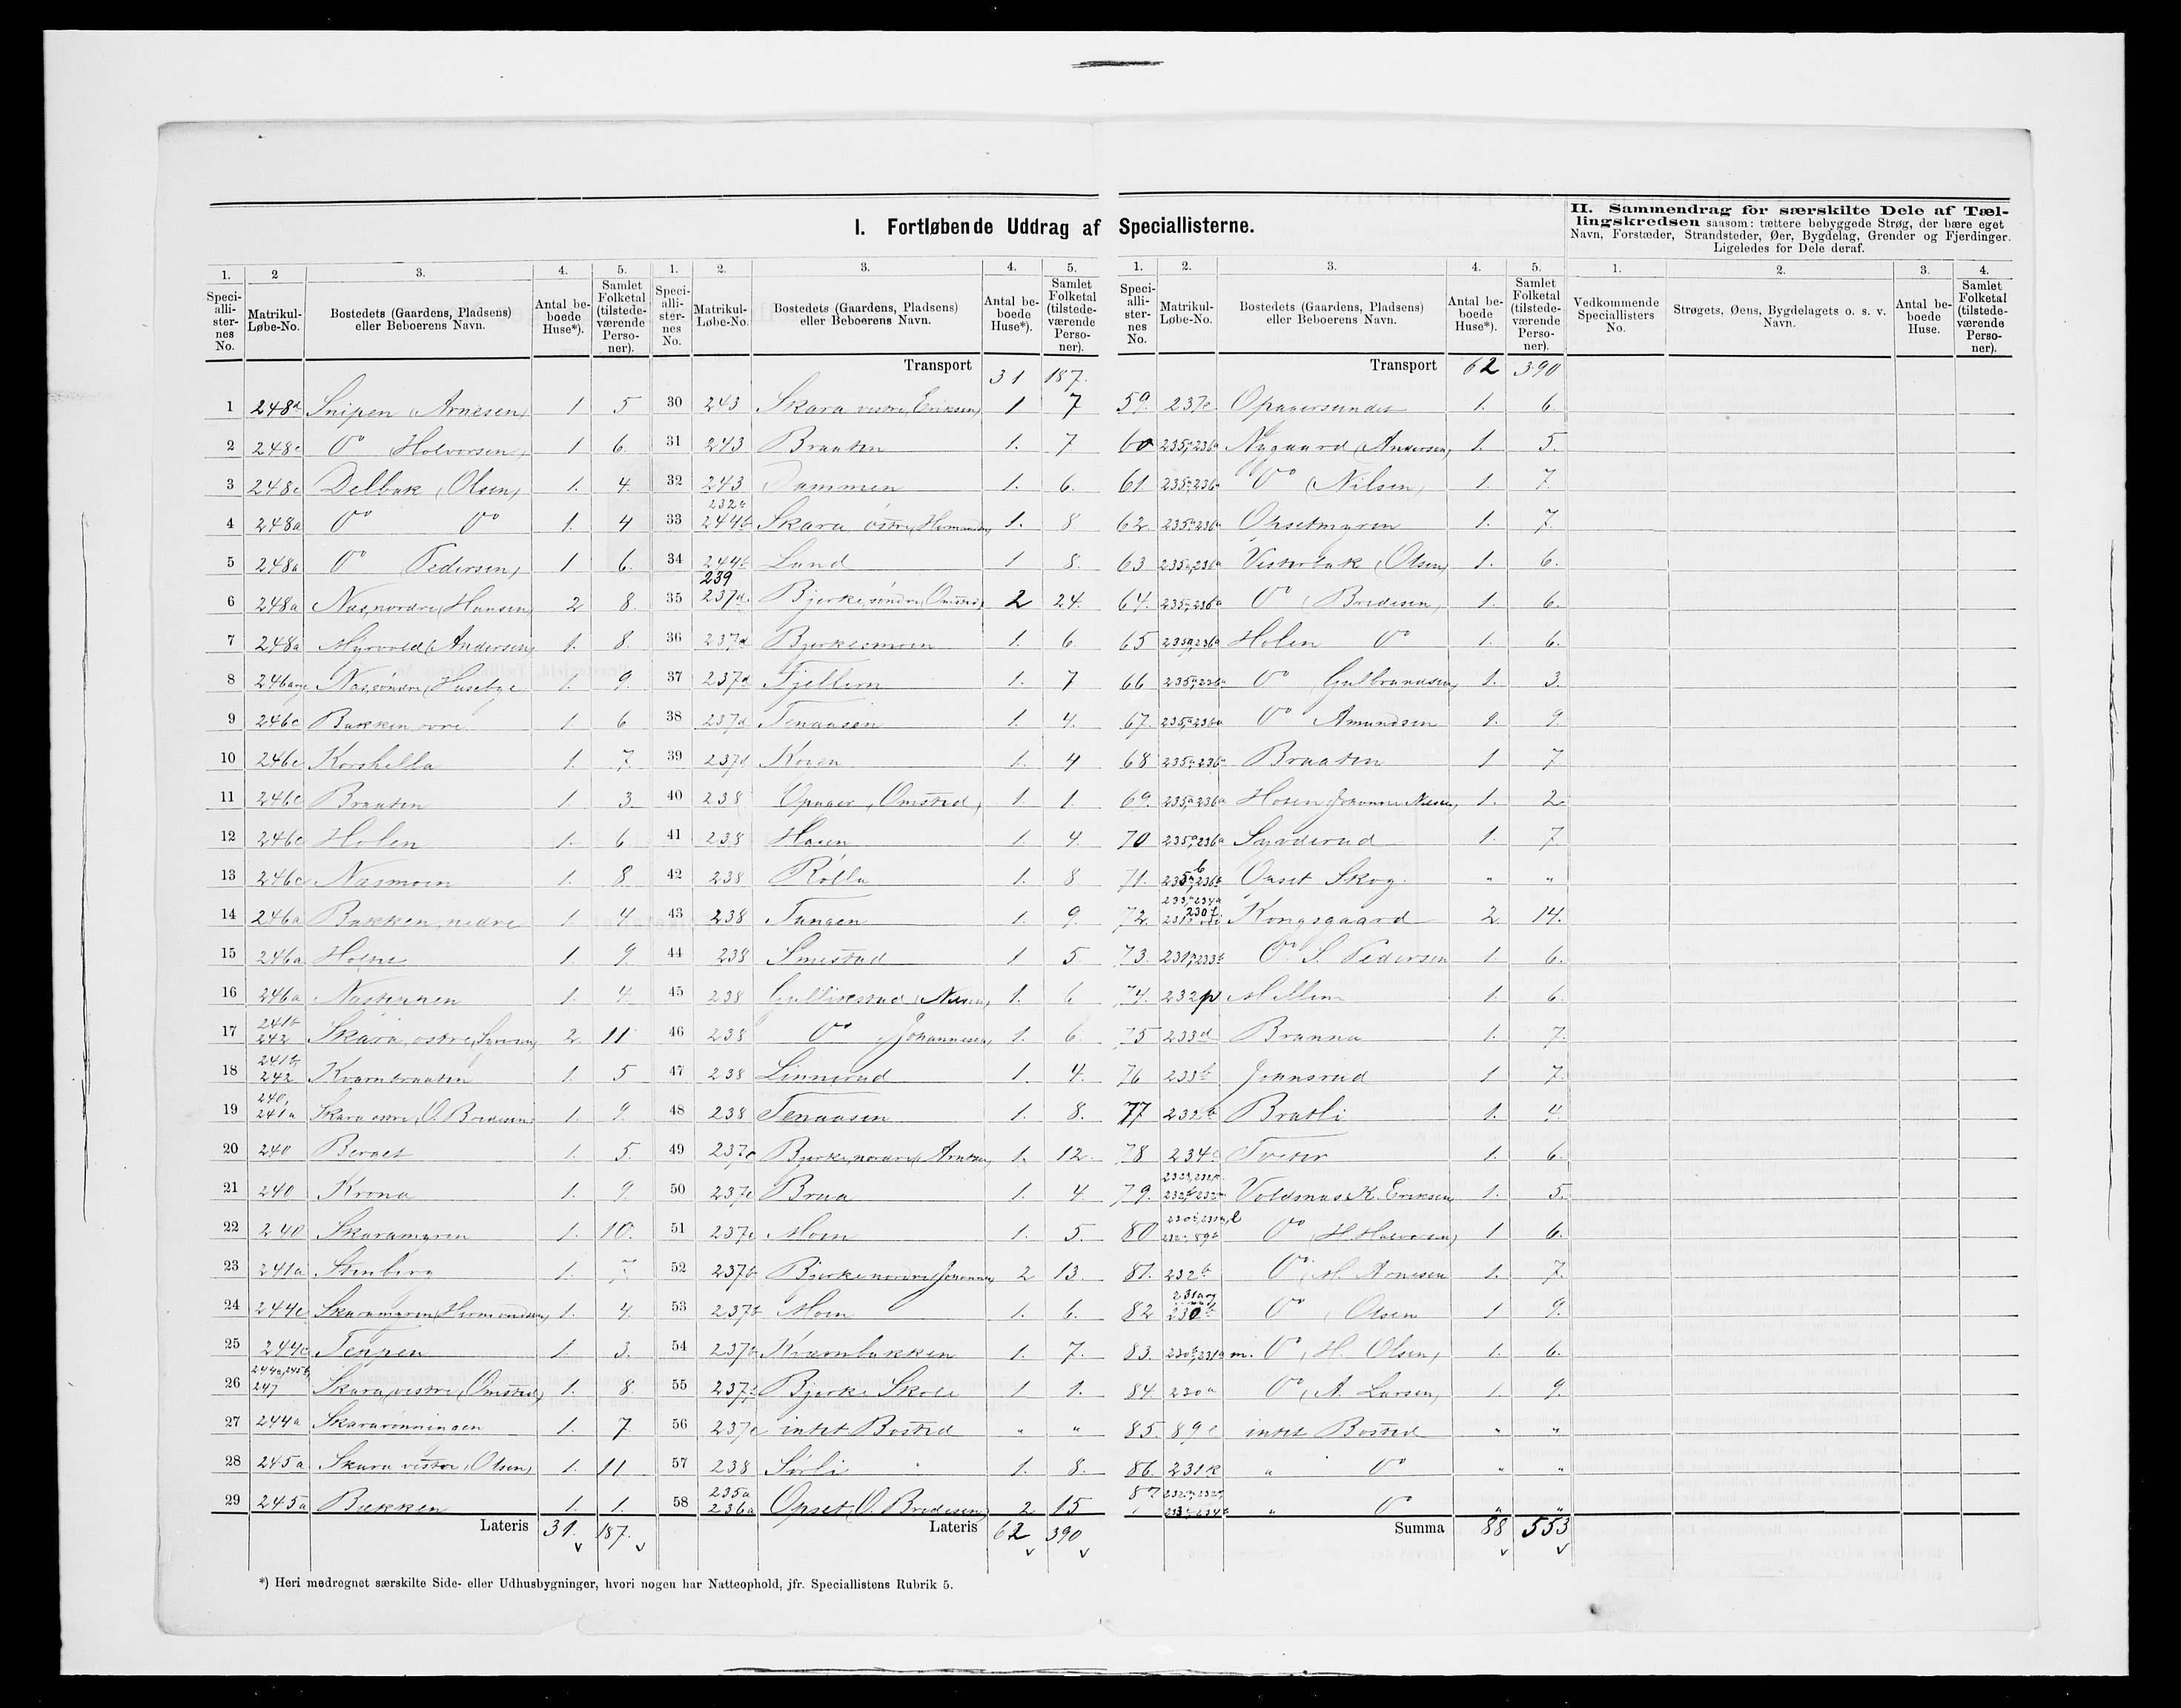 I. Fortløbende Uddrag af Speciallisterne.
II. Sammendrag for særskilte Dele af Tæl-
lingskredsen saasom: tættere bebyggede Strøg, der bære eget
Navn, Forstæder, Strandsteder, Øer, Bygdelag, Grender og Fjerdinger.
Ligeledes for Dele deraf.
1. 2 3. 4. 5.
Speciallisternes No. Matrikul-Løbe-No. Bostedets (Gaardens, Pladsens) eller Beboerens Navn. Antal beboede Huse*). Samlet Folketal (tilstedeværende Personer).
1 248d Snipen (Arnesen) 1 5
2 248c Do Halvorsen, 1 6.
3 248c Delbak (Olsen) 1. 4.
4 248a Do Do 1. 4
5 248a Do Pedersen, 1 6.
6 248a Næs, nordre (Hansen) 2 8.
7 248a Myrvold (Andersen) 1. 8.
8 246 Næs, søndre, Husebye 1. 9.
9 246c Bakken øvre 1. 6
10 246c Korshella 1. 7.
11 246c Braaten 1. 3.
12 246c Holen 1. 6.
13 246c Næsmoen 1. 8.
14 246a Bakken, nedre 1. 4
15 246a 1. 9.
16 246a 1. 4.
17 241b 242 Skara, østre, 2. 11
18 241b, 242 Kvernbraaten 1. 5
19 240, 241a Skara østre, O. Bredesen 1. 9.
20 240 Berget 1. 5.
21 240 Krona 1. 9.
22 240 Skaramyren 1. 10.
23 241a Stenberg 1. 7.
24 244c Skaramyren (Hermandsen) 1. 4.
25 244c Teppen 1. 3.
26 244a, 245b, 247 Skara, vestre, (Omsted) 1. 8.
27 244a Skararønningen 1. 7.
28 245a Skara vestre, (Olsen) 1. 11
29 245a Bakken 1. 1.
Lateris 31. 187.
1. 2. 3. 4. 5.
Speciallisternes No. Matrikul-Løbe-No. Bostedets (Gaardens, Pladsens) eller Beboerens Navn. Antal beboede Huse*). Samlet Folketal (tilstedeværende Personer).
Transport 31 187.
30 243 Skara vestre, Eriksen) 1 7
31 243 Braaten 1. 7
32 243 Dammen 1. 6.
33 232b 244b Skara østre, Hermansen 1. 8
34 244b Lund 1 8.
35 239 237d. Bjerke, søndre, Omsted, 2 24.
36 237d Bjerkesmoen 1. 6
37 237d Fjellien 1. 7
38 237d Tenaasen 1. 4.
39 237d Koien 1. 4
40 238 Opager, Omsted, 1. 1.
41 238 Hagen 1. 4.
42 238 Rölla 1. 8.
43 238 Tangen 1. 9.
44 238 Smestad 1 5.
45 238 1. 6
46 238 Do Johannesen, 1. 6.
47 238 Linnerud 1. 4.
48 238 Tenaasen 1. 8.
49 237c Bjerke, nordre, Arntsen, 1. 12.
50 237c Braa 1. 4.
51 237c Moen 1. 5.
52 237b Bjerke nordre 2 13.
53 237b Moen 1. 6.
54 237b Kvernbakken 1. 7.
55 237b Bjerke Skole 1 1.
56 237c intet Bosted " "
57 238 Sørli 1. 8.
58 235a 236a Opset, O. Bredesen) 2 15
Lateris 62 390
1. 2. 3. 4. 5.
Speciallisternes No. Matrikul-Løbe-No. Bostedets (Gaardens, Pladsens) eller Beboerens Navn. Antal beboede Huse*). Samlet Folketal (tilstedeværende Personer).
Transport 62 390
59. 237c Opagersundet 1. 6.
60 235a, 236a Nygaard (Andersen, 1. 5.
61 235a, 236a Do (Nilsen, 1. 7.
62 235a, 236a Opsetmyren 1. 7.
63 235a, 236a Vesterbak (Olsen) 1. 6.
64. 235a, 236a Do (Bredesen, 1. 6.
65 235a, 236a Holen Do 1. 6.
66 235a, 236a Do Gulbrandsen, 1. 3.
67. 235a, 236a Do Amundsen 1. 9.
68 235a, 236a Braaten 1 7.
69. 235a, 236a Johanne Nilsen, 1. 2.
70 235a, 236a Syvderud 1. 7.
71. Opset Skog. " "
72. Kongsgaard 2 14.
73. Do S. Pedersen 1. 6.
74. 232p Mellem 1. 6.
75 233d Branna 1. 7.
76 233b Jonnsrud 1 7.
77 232b Bratli 1. 4.
78 234c Tveter 1. 6.
79. Voldsnæs K. Eriksen 1. 5.
80 Do H. Halvorsen) 1 6.
81. 232b Do M. Arnesen 1. 7.
82 230b Do (Olsen 1 9.
83. 230b, 231a m. Do, H. Olsen, 1. 6.
84. 230a Do (A. Larsen, 1. 9.
85. 89e intet Bosted " "
86. 231k " Do " "
87 " Do " "
Summa 88 553
1. 2. 3. 4.
Vedkommende Speciallisters No. Strøgets, Øens, Bygdelagets o. s. v. Navn. Antal beboede Huse. Samlet Folketal (tilstedeværende Personer).
*) Heri medregnet særskilte Side- eller Udhusbygninger, hvori nogen har Natteophold, jfr. Speciallistens Rubrik 5.